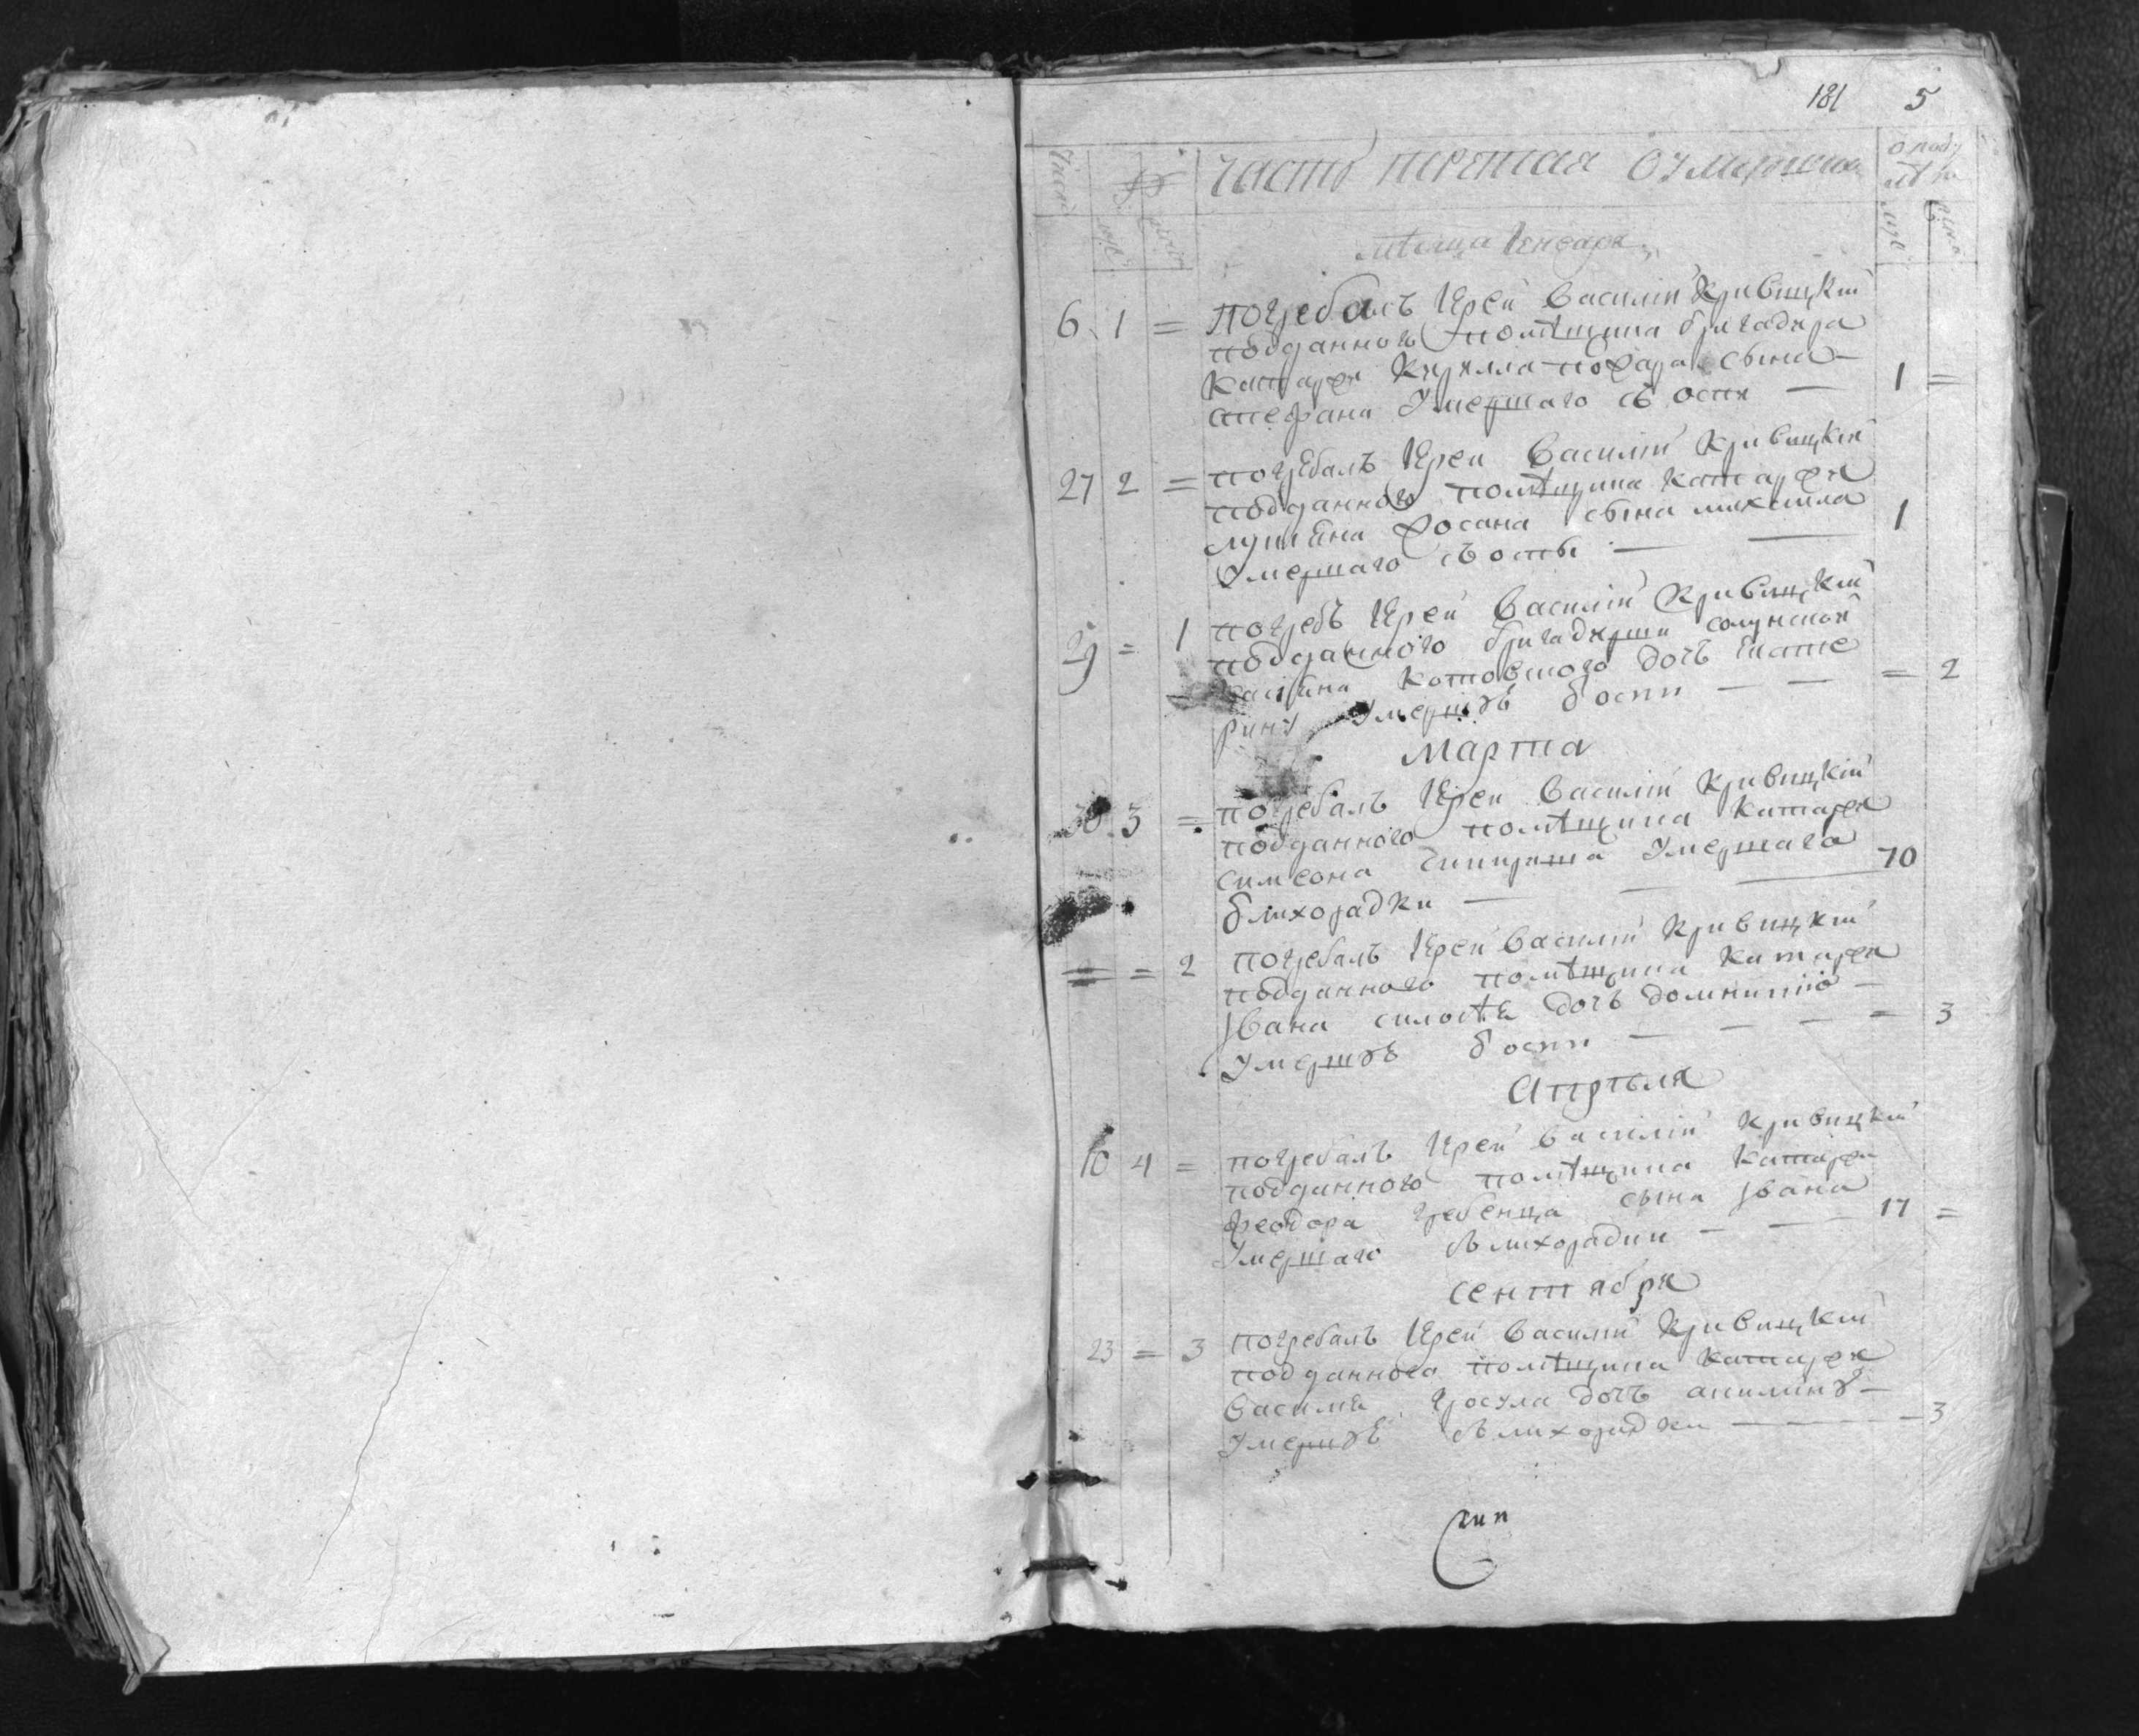 181 5
Число № часть третая Оумершихъ
муж
месяца Іенваря
6 1 = погребалъ Іерей Василій Кривицкій
подданного помѣщика бригадира
Катаржи Кирилла сына
стефана Умершаго съ оспи — 1 =
27 2 = погребалъ Іерей Василій Кривицкій
подданного помѣщика Катаржи
сына михаила
Умершаго съ оспы — — 1
29 = 1 погребъ Іерей Василій Кривицкій
подданного бригадирши
Котовского дочь Екате
рину Умершую оспи — — = 2
Марта
30 3 = погребалъ Іерей Василій Кривицкій
подданного помѣщика Катаржи
симеона Умершаго
лихорадки — — — 70
= = 2 погребалъ Іерей Василій Кривицкій
подданного помѣщика Катаржи
Ивана дочь домникію —
Умершую оспи — — — = 3
Апрѣля
10 4 = погребалъ Іерей Василій Кривицкій
подданного помѣщика Катаржи
феодора Гребенца сына Ивана
Умершаго лихорадки — — 17 =
сентября
23 = 3 погребалъ Іерей Василій Кривицкій
подданного помѣщика Катаржи
Василия Гросула дочь акилину —
Умершую лихорадки — — — 3